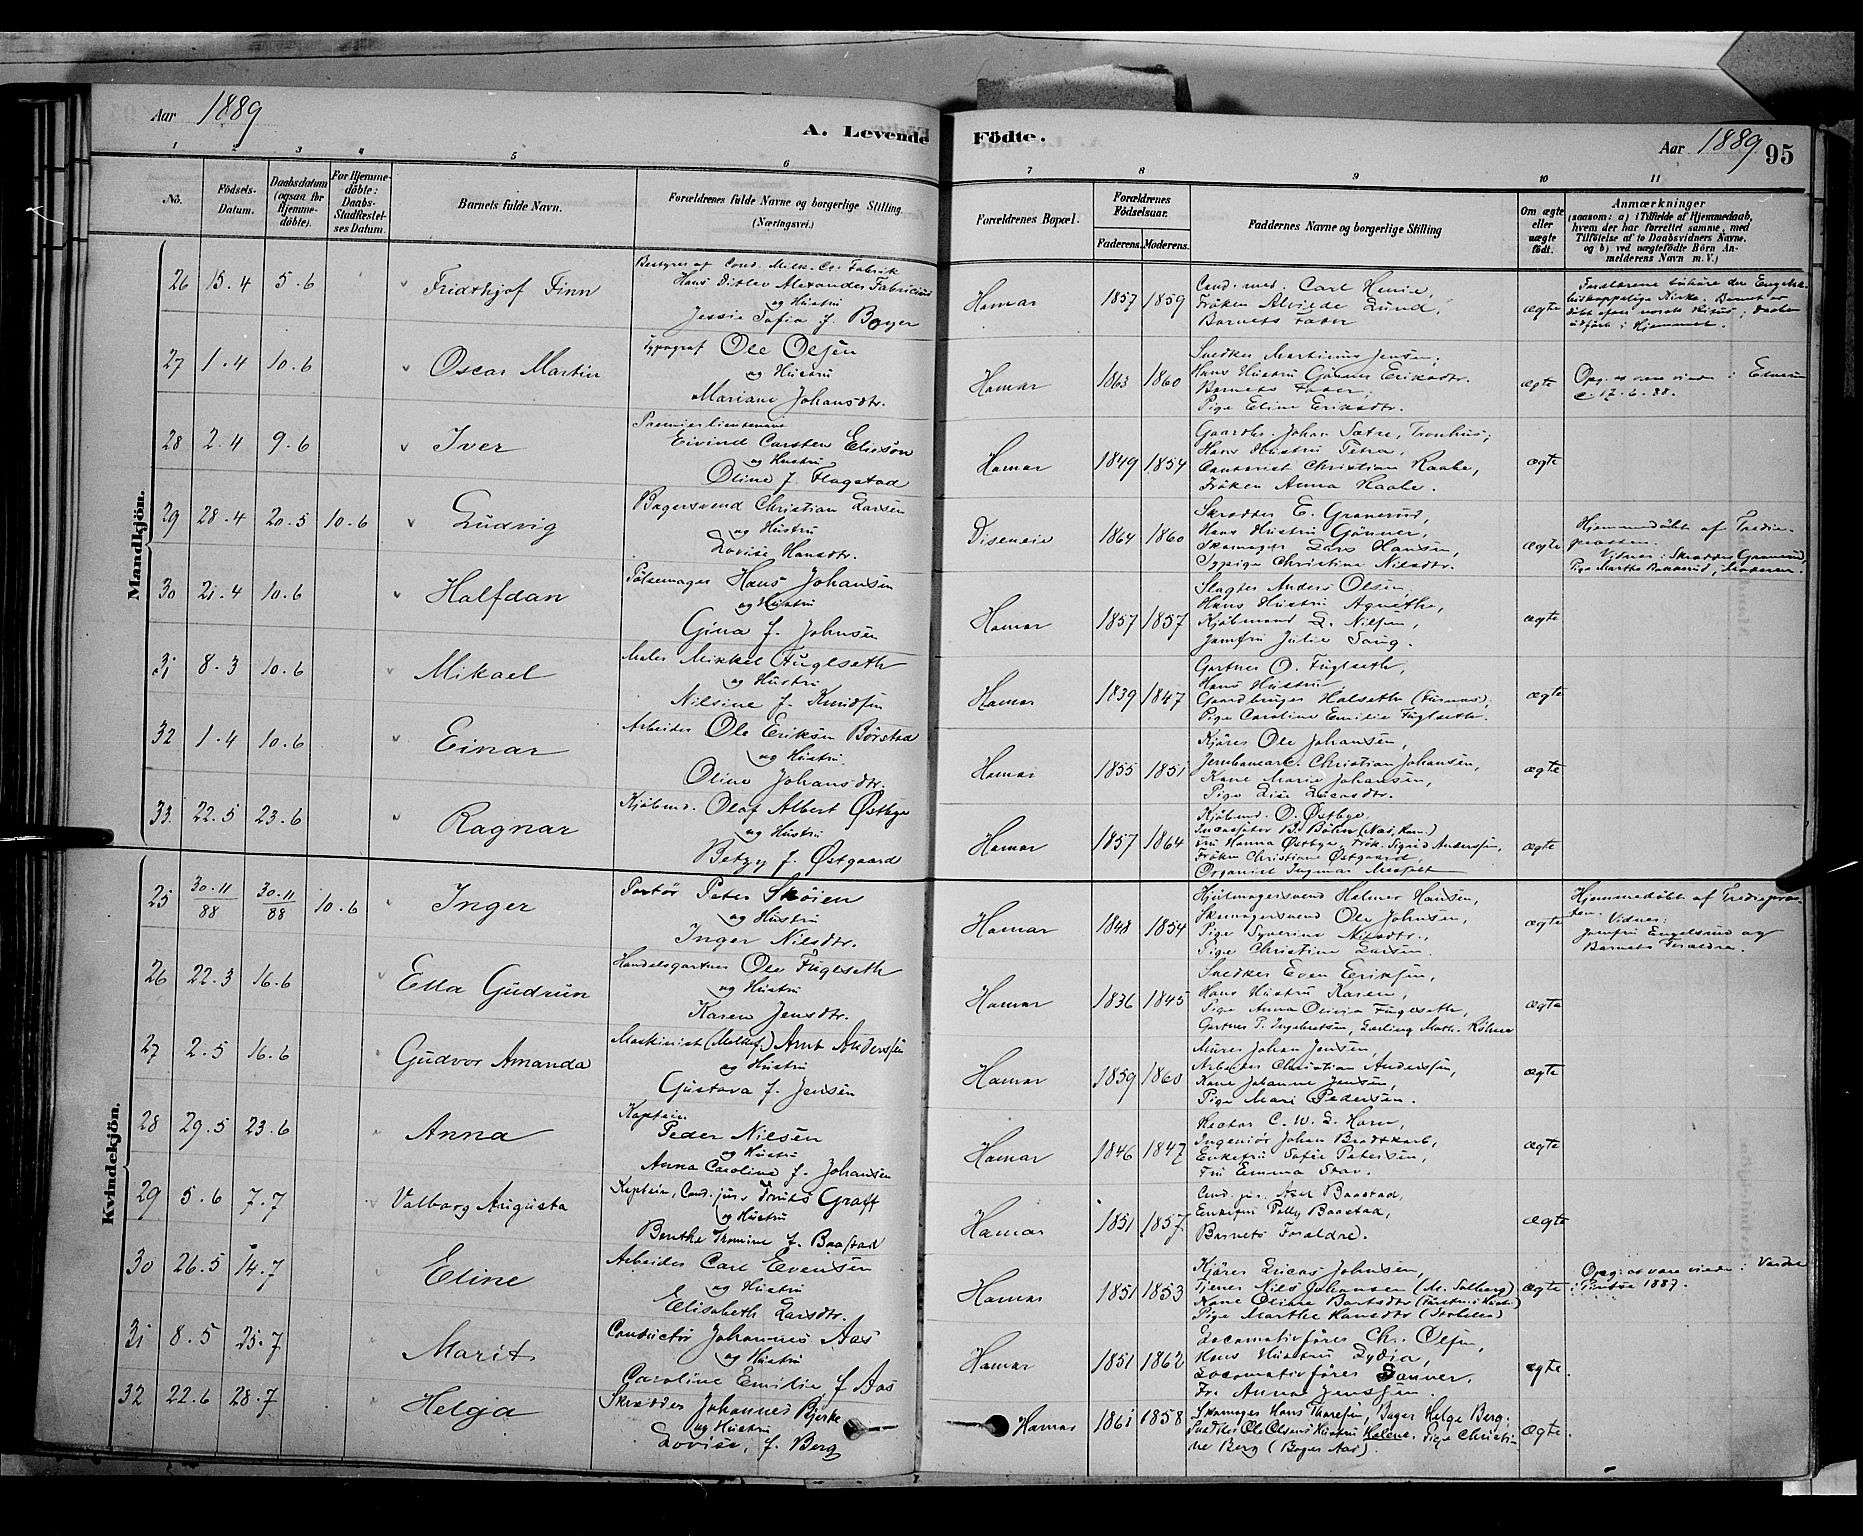 Aar 1889
A. Levende Födte.
Aar 1889 95
1 2 3 4 5 6 7 8 9 10 11
No.
Födsels-Datum.
Daabsdatum (ogsaa for Hjemme-döbte).
For Hjemme-döbte: Daabs-Stadfæstel-ses Datum.
Barnets fulde Navn.
Forældrenes fulde Navne og borgerlige Stilling. (Næringsvei.)
Forældrenes Bopæl.
Forældrenes Födselsaar.
Faderens. Moderens.
Faddernes Navne og borgerlige Stilling
Om ægte eller uægte födt.
Anmærkninger
(saasom: a) i Tilfælde af Hjemmedaab, hvem der har forrettet samme, med Tilföielse af to Daabsvidners Navne, og b) ved uægtefödte Börn An-melderens Navn m. V.)
Mandkjön.
26 15.4 5.6 Fridthjof Finn
Hans Ditlev Alexander Fabricius
og Hustru
Jessie Sofia f. Boyer
Hamar 1857 1859
Cand. med. Carl
Frøken Lund,
Barnets Fader
ægte
27 1.4 10.6 Oscar Martin
Typograf Ole Olsen
og Hustru
Mariane Johansdtr.
Hamar 1863 1860
Snedker Martinius Jensen,
Hans Hustru Gunner Eriksdtr.
Barnets Fader,
Pige Eline Eriksdtr.
ægte
28 2.4 9.6 Iver
Premierlieutenant
Eivind Carsten Elieson
og Hustru
Oline f. Flagstad
Hamar 1849 1854
Gaardbr. Johan Sætre, Tronhus,
Hans Hustru Petra,
Christian Raabe,
Frøken Anna Raabe.
ægte
29 28.4 20.5 10.6 Ludvig
Bagersvend Christian Larsen
og Hustru
Lovise Hansdtr.
Diseneie 1864 1860
Skrædder E. Granerud,
Hans Hustru Gunner,
Skomager Lars Hansen,
Sypige Christine Nilsdtr.
ægte
Hjemmedøbt af
Vidner: Skrædder Granerud,
Pige Marthe Moderen.
30 21.4 10.6 Halfdan
Pølsemager Hans Johansen
og Hustru
Gina f. Johnsen
Hamar 1857 1857
Slagter Anders Olsen,
Hans Hustru Agnethe,
Kjøbmand L. Nilsen,
Jomfru Julie
ægte
31 8.3 10.6 Mikael
Maler Mikkel Fuglseth
og Hustru
Nilsine f. Knudsen
Hamar 1839 1847
Gartner O. Fuglseth,
Hans Hustru
Gaardbruger Halseth (Furnæs),
Pige Caroline Emilie Fuglseth.
ægte
32 1.4 10.6 Einar
Arbeider Ole Eriksen Børstad
og Hustru
Oline Johansdtr.
Hamar 1855 1851
Kjører Ole Johansen,
Jernbanearb. Christian Johansen,
Kone Marie Johansen,
Pige Lise Lucasdtr.
ægte
33. 22.5 23.6 Ragnar
Kjøbmd. Olaf Albert Østbye
og Hustru
Betzy f. Østgaard
Hamar 1857 1864
Kjøbmd. O. Østbye,
B. Böhn
Fru Hanna Østbye, Frøk. Sigrid Anderssen,
Frøken Christiane Østgaard,
Organist Ingmar
ægte
Kvindekjön.
25 30.11/88 30.11/88 10.6 Inger
Portør Peter Skøien
og Hustru
Inger Nilsdtr.
Hamar 1848 1854
Hjulmagersvend Halmer Hansen,
Skomagersvend Ole Johnsen,
Pige Syverine Nilsdtr.,
Pige Christine Larsen.
ægte
Hjemmedøbt af
Vidner:
Jomfru og
Barnets Forældre.
26 22.3 16.6 Ella Gudrun
Handelsgartner Ole Fuglseth
og Hustru
Karen Jensdtr.
Hamar 1836 1845
Snedker Even Eriksen,
Hans Hustru Karen,
Pige Anna Olivia Fuglseth,
Gartner P. Ingebretsen,
ægte
27 2.5 16.6 Gudvor Amanda
Maskinist Arnt Anderssen
og Hustru
Gustava f. Jensen
Hamar 1859 1860
Murer Johan Jensen,
Arbeider Christian Anderssen,
Kone Johanne Jensen,
Pige Mari Pedersen.
ægte
28 29.5 23.6 Anna
Kaptein
Peder Nilsen
og Hustru
Anna Caroline f. Johansen
Hamar 1846 1847
Rector C. W. L. Horn,
Ingeniør Johan
Enkefru Sofie Petersen,
Fru Emma
ægte
29 5.6 7.7 Valborg Augusta
Kaptein, Cand. jur. Graff
og Hustru
Benthe f. Baastad
Hamar 1851 1857
Cand. jur. Axel Baastad,
Enkefru Polly Baastad,
Barnets Forældre.
ægte
30 26.5 14.7 Eline
Arbeider Carl Evensen
og Hustru
Elisabeth Larsdtr.
Hamar 1851 1853
Kjører Lucas Johnsen,
Tjener Nils Johansen
Kone
Pige Marthe Hansdtr
ægte
1887.
31 8.5 25.7 Marit
Conductør Johannes Aas
og Hustru
Caroline Emilie f. Aas
Hamar 1851 1862
Locomotivfører Chr. Olsen,
Hans Hustru Lydia,
Locomotivfører Sanner,
Fr. Anna Jenssen.
ægte.
32 22.6 28.7 Helga
Skrædder Johannes Bjerke
og Hustru
Lovise, f. Berg
Hamar 1861 1858
Skomager Hans Thoresen, Bager Helge Berg;
Snedker Ole Olsens Hustru Helene. Pige Christi-
ne Berg (Bager Aas).
ægte.